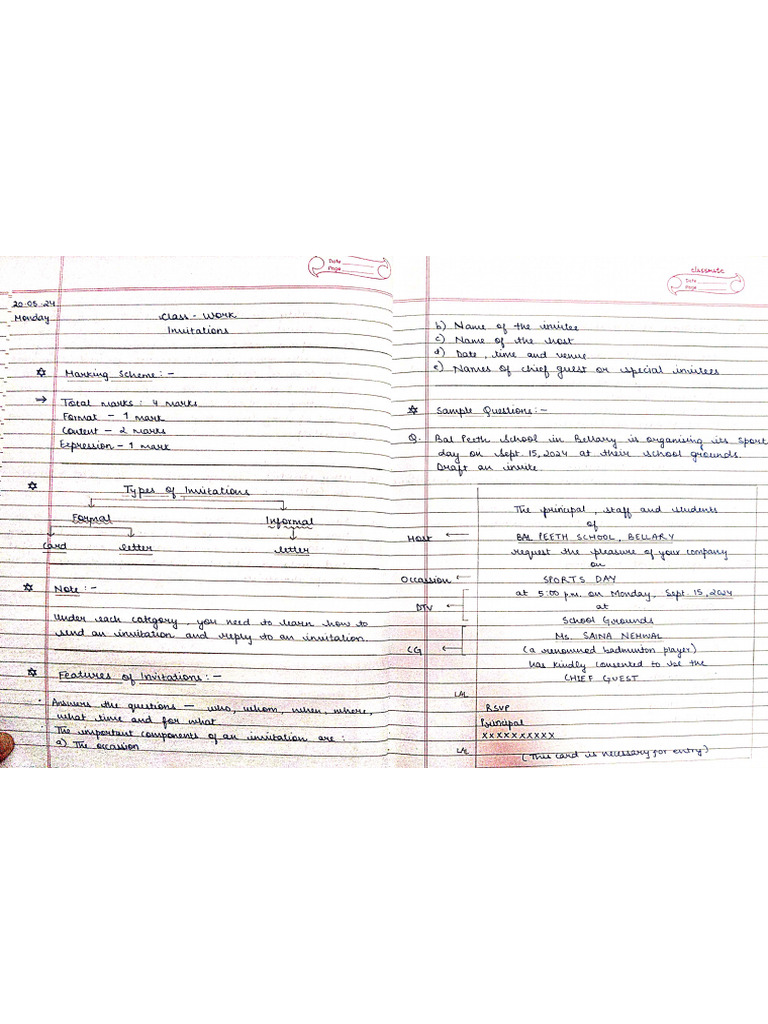 Date
Page
20.05.24
Monday
Class - Work
Invitations
Marking Scheme :-
→ Total marks : 4 marks
Format - 1 mark
Content - 2 marks
Expression - 1 mark
Types of Invitations
Formal Informal
Card letter letter
Note :-
Under each category, you need to learn how to
send an invitation and reply to an invitation.
Features of Invitations :-
• Answers the questions - who, whom, when, where,
what time and for what
• The important components of an invitation are :
a) The occasion
classmate
Date
Page
b) Name of the invitee
c) Name of the host
d) Date, time and venue
e) Names of chief guest or special invitees
Sample Questions :-
Q. Bal Peeth School in Bellary is organising its sport
day on Sept. 15, 2024 at their school grounds.
Draft an invite.
The principal, staff and students
of
Host ← BAL PEETH SCHOOL, BELLARY
request the pleasure of your company
on
Occassion ← SPORTS DAY
DTV ← at 5:00 p.m. on Monday, Sept. 15, 2024
at
School Grounds
Ms. SAINA NEHWAL
CG ← (a renowned badminton player)
has kindly consented to be the
CHIEF GUEST
RSVP
Principal
XXXXXXXXXX
(This card is necessary for entry)